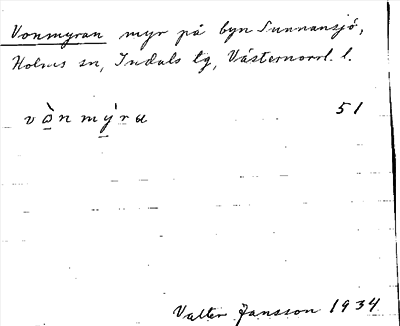 Vonmyran myr på byn Sunnansjö,
Holms sn, Indals tg, Västernorrl. l.
vò̲n mý̲ra 51
Valter Jansson 1934